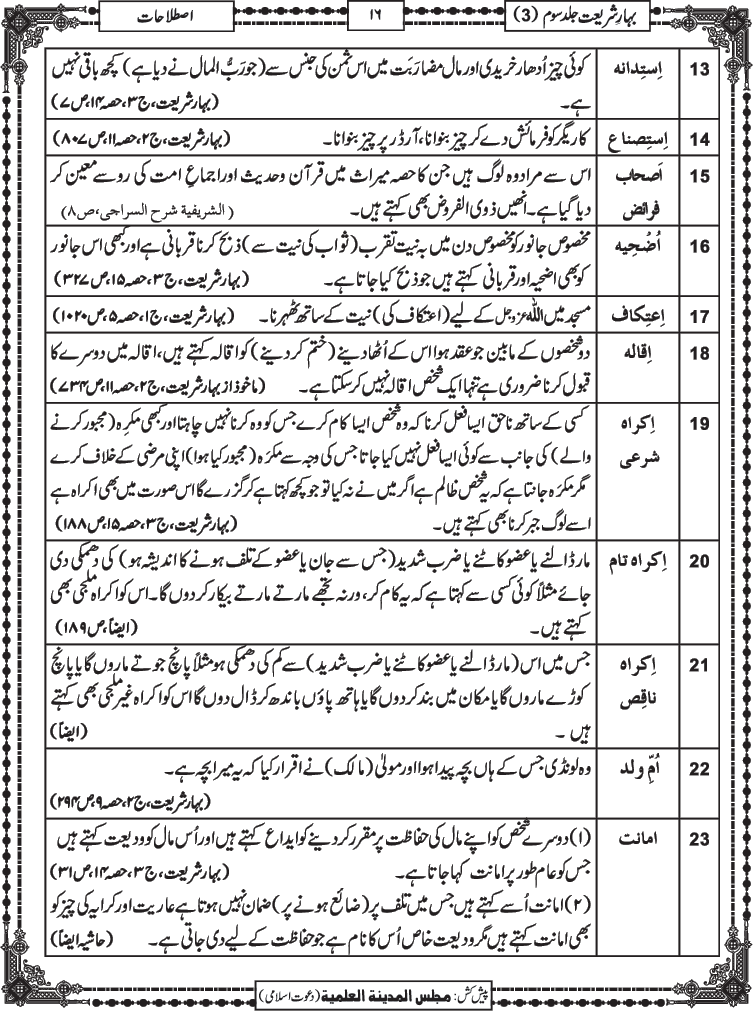 بہار شریعت جلد سوم (3)
۱۶
اصطلاحات
13 اِستِدانه کوئی چیز اُدھار خریدی اور مال مضارَبَت میں اس ثمن کی جنس سے (جو رَبُّ المال نے دیا ہے) کچھ باقی نہیں
ہے۔ (بہار شریعت، ج۳، حصہ۱۴، ص۷)
14 اِستِصناع کاریگر کو فرمائش دے کر چیز بنوانا، آرڈر پر چیز بنوانا۔ (بہار شریعت، ج۲، حصہ۱۱، ص۸۰۷)
15 اَصحاب اس سے مراد وہ لوگ ہیں جن کا حصہ میراث میں قرآن وحدیث اور اجماعِ امت کی رو سے معین کر
فرائض دیا گیا ہے۔ انھیں ذوی الفروض بھی کہتے ہیں۔ (الشريفية شرح السراجی، ص۸)
16 اُضْحِیه مخصوص جانور کو مخصوص دن میں بہ نیت تقرب (ثواب کی نیت سے) ذبح کرنا قربانی ہے اور کبھی اس جانور
کو بھی اضحیہ اور قربانی کہتے ہیں جو ذبح کیا جاتا ہے۔ (بہار شریعت، ج۳، حصہ۱۵، ص۳۲۷)
17 اِعتِکاف مسجد میں اللہ عزوجل کے لیے (اعتکاف کی) نیت کے ساتھ ٹھہرنا۔ (بہار شریعت، ج۱، حصہ۵، ص۱۰۲۰)
18 اِقاله دو شخصوں کے مابین جو عقد ہوا اس کے اُٹھا دینے (ختم کر دینے) کو اقالہ کہتے ہیں، اقالہ میں دوسرے کا
قبول کرنا ضروری ہے تنہا ایک شخص اقالہ نہیں کر سکتا ہے۔ (ماخوذ از بہار شریعت، ج۲، حصہ۱۱، ص۷۳۴)
19 اِکراه کسی کے ساتھ ناحق ایسا فعل کرنا کہ وہ شخص ایسا کام کرے جس کو وہ کرنا نہیں چاہتا اور کبھی مکرِہ (مجبور کرنے
شرعی والے) کی جانب سے کوئی ایسا فعل نہیں کیا جاتا جس کی وجہ سے مکرَہ (مجبور کیا ہوا) اپنی مرضی کے خلاف کرے
مگر مکرَہ جانتا ہے کہ یہ شخص ظالم ہے اگر میں نے نہ کیا تو جو کچھ کہتا ہے کر گزرے گا اس صورت میں بھی اکراہ ہے
اسے لوگ جبر کرنا بھی کہتے ہیں۔ (بہار شریعت، ج۳، حصہ۱۵، ص۱۸۸)
20 اِکراه تام مار ڈالنے یا عضو کاٹنے یا ضرب شدید (جس سے جان یا عضو کے تلف ہونے کا اندیشہ ہو) کی دھمکی دی
جائے مثلاً کوئی کسی سے کہتا ہے کہ یہ کام کر، ورنہ تجھے مارتے مارتے بیکار کر دوں گا۔ اس کو اکراہ ملجی بھی
کہتے ہیں۔ (ایضاً، ص۱۸۹)
21 اِکراه جس میں اس (مار ڈالنے یا عضو کاٹنے یا ضرب شدید) سے کم کی دھمکی ہو مثلاً پانچ جوتے ماروں گا یا پانچ
ناقِص کوڑے ماروں گا یا مکان میں بند کر دوں گا یا ہاتھ پاؤں باندھ کر ڈال دوں گا اس کو اکراہ غیر ملجی بھی کہتے
ہیں ۔ (ایضاً)
22 اُمِّ ولد وہ لونڈی جس کے ہاں بچہ پیدا ہوا اور مولیٰ (مالک) نے اقرار کیا کہ یہ میرا بچہ ہے۔
(بہار شریعت، ج۲، حصہ۹، ص۲۹۴)
23 امانت (۱) دوسرے شخص کو اپنے مال کی حفاظت پر مقرر کر دینے کو ایداع کہتے ہیں اور اُس مال کو ودیعت کہتے ہیں
جس کو عام طور پر امانت کہا جاتا ہے۔ (بہار شریعت، ج۳، حصہ۱۴، ص۳۱)
(۲) امانت اُسے کہتے ہیں جس میں تلف پر (ضائع ہونے پر) ضمان نہیں ہوتا ہے عاریت اور کرایہ کی چیز کو
بھی امانت کہتے ہیں مگر ودیعت خاص اُس کا نام ہے جو حفاظت کے لیے دی جاتی ہے۔ (حاشیہ ایضاً)
پیش کش: مجلس المدینة العلمیة (دعوت اسلامی)